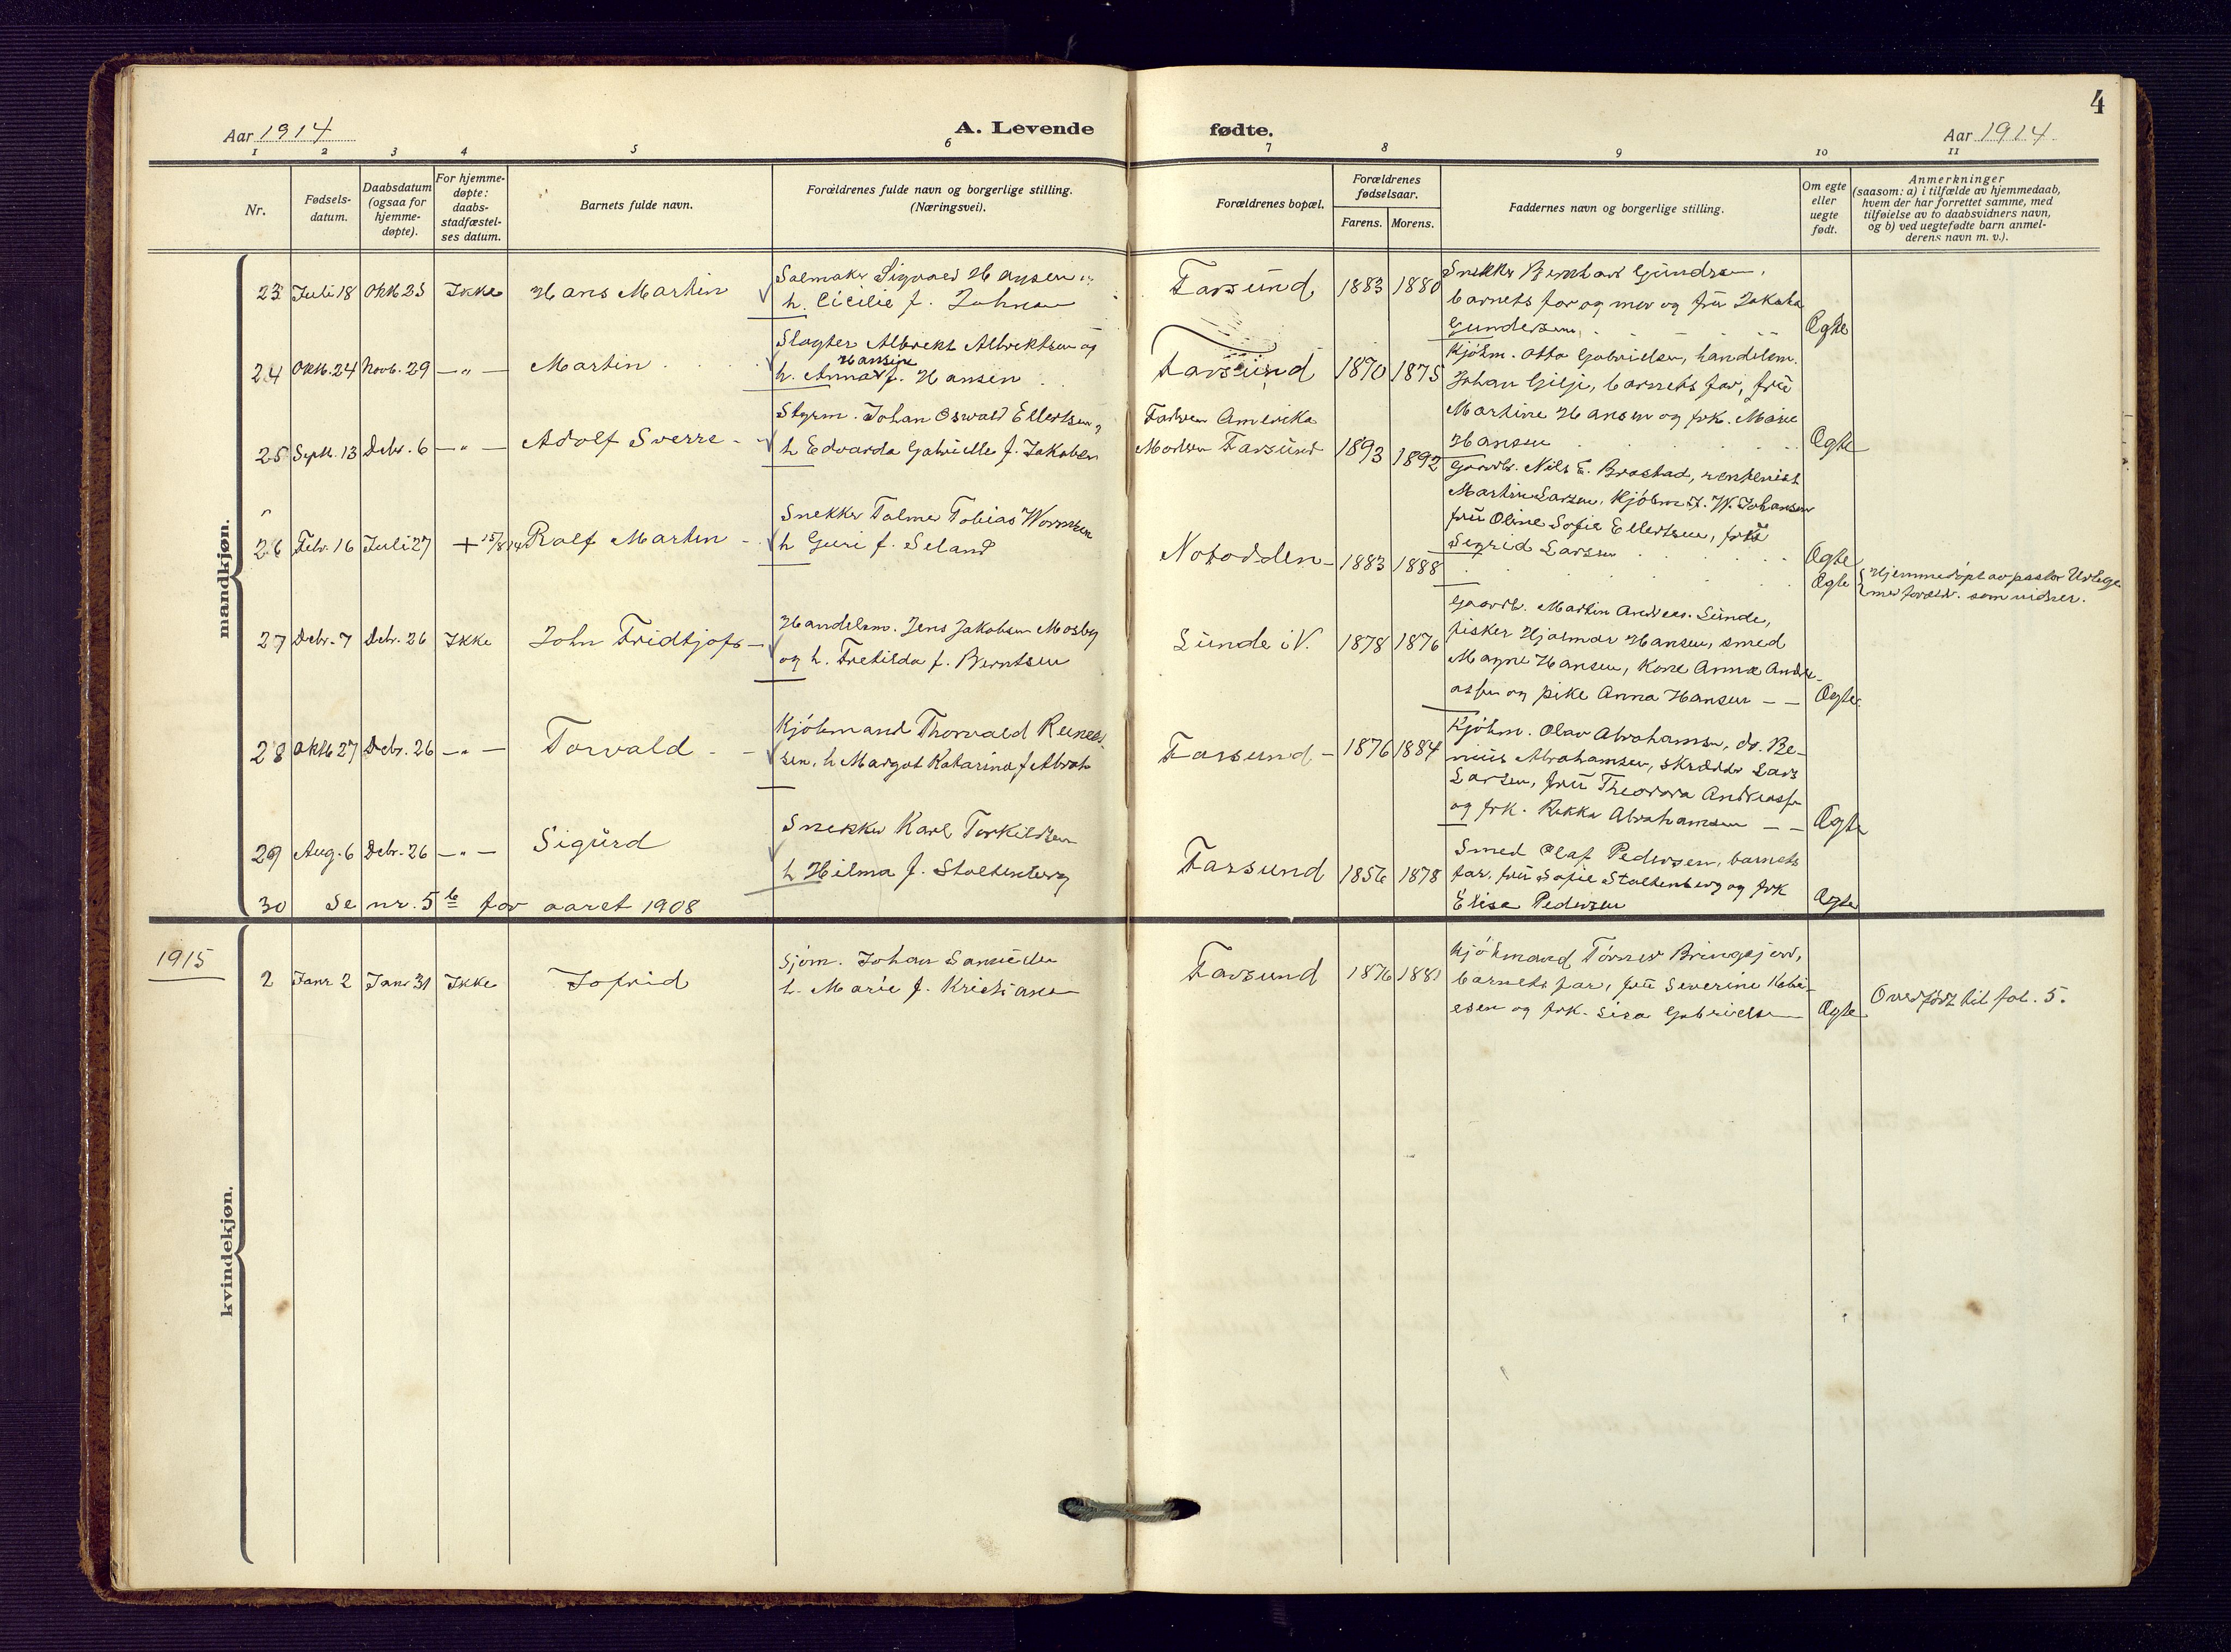 4
Aar 1914
A. Levende
fødte.
Aar 1914
1 2 3 4 5 6 7 8 9 10 11
Nr.
Fødsels-
datum.
Daabsdatum
(ogsaa for
hjemme-
døpte).
For hjemme-
døpte:
daabs-
stadfæstel-
ses datum.
Barnets fulde navn.
Forældrenes fulde navn og borgerlige stilling.
(Næringsvei).
Forældrenes bopæl.
Forældrenes
fødselsaar.
Farens. Morens.
Faddernes navn og borgerlige stilling.
Om egte
eller
uegte
født.
Anmerkninger
(saasom: a) i tilfælde av hjemmedaab,
hvem der har forrettet samme, med
tilføielse av to daabsvidners navn,
og b) ved uegtefødte barn anmel-
derens navn m. v.).
mandkjøn.
23 Juli 18 Oktb 25 Ikke Hans Martin
Salmaker Sigvald Hansen
h. Cicilie f. Johnsen
Farsund 1883 1880
Snekker Bernhard Gundersen,
barnets far og mor og frü Jakoba
Gundersen
Ægte
24 Oktb. 24 Novb. 29 —„— Martin
Slagter Albrekt Albrektsen og
Hansine
h. Anna f. Hansen
Farsund 1870 1875
Kjøbm. Otto Gabrielsen, handelsm.
Johan Gilje, barnets far, frü
Martine Hansen og frk. Marie
Hansen
Ægte
25 Septb. 13 Debr. 6 —„— Adolf Sverre
Styrm. Johan Oswald Ellertsen,
h Edvarda Gabrielle f. Jakobsen
Faderen Amerika
Moderen Farsund 1893 1892
Gaardb. Nils E. Brastad, rentenist
Martin Larsen, Kjøbm J. W. Johansen
frü Oline Sofie Ellertsen, frk
Sigrid Larsen
Ægte
26 Febr. 16 Juli 27 + 15/8 14 Ralf Martin
Snekker Talmer Tobias Wormsen
h Guri f. Seland
Notodden 1883 1888
Ægte
Hjemmedøpt av pastor
med forældr. som vidner.
27 Debr. 7 Debr. 26 Ikke John Fridtjof
Handelsm. Jens Jakobsen Mosby
og h. Fretilda f. Berntsen
Sünde i V. 1878 1876
Gaardb. Martin Andreas. Sünde,
fisker Hjalmar Hansen, smed
Magne Hansen, Kone Anna Andre-
assen og pike Anna Hansen
Ægte
28 Oktb 27 Debr. 26 —„— Torvald
Kjøbmand Thorvald Reinert-
sen, h Margot Katarina f Abrah
Farsund 1876 1884
Kjøbm. Olav Abrahamsen, dr. Be-
niüs Abrahamsen, skrædder Lars
Larsen, frü Theodora Andreassen
og frk. Rekka Abrahamsen
Ægte
29 Aug. 6 Debr. 26 —„— Sigurd
Snekker Karl Torkildsen
h Hilma f. Stoltenberg
Farsund 1856 1878
Smed Olaf Pedersen, barnets
far, frü Sofie Stoltenberg og frk
Elise Pedersen
Ægte
30 Se nr. 5 b for aaret 1908
kvindekjøn.
1915
2 Janr 2 Janr 31 Ikke Jofrid
Sjøm. Johan Samuelsen
h. Marie f. Kristianen
Farsund 1876 1881
Kjøbmand Tørres Bringsjord,
barnets far, frü Severine Kobi-
esen og frk. Lisa Gabrielsen
Ægte
Overført til fol. 5.